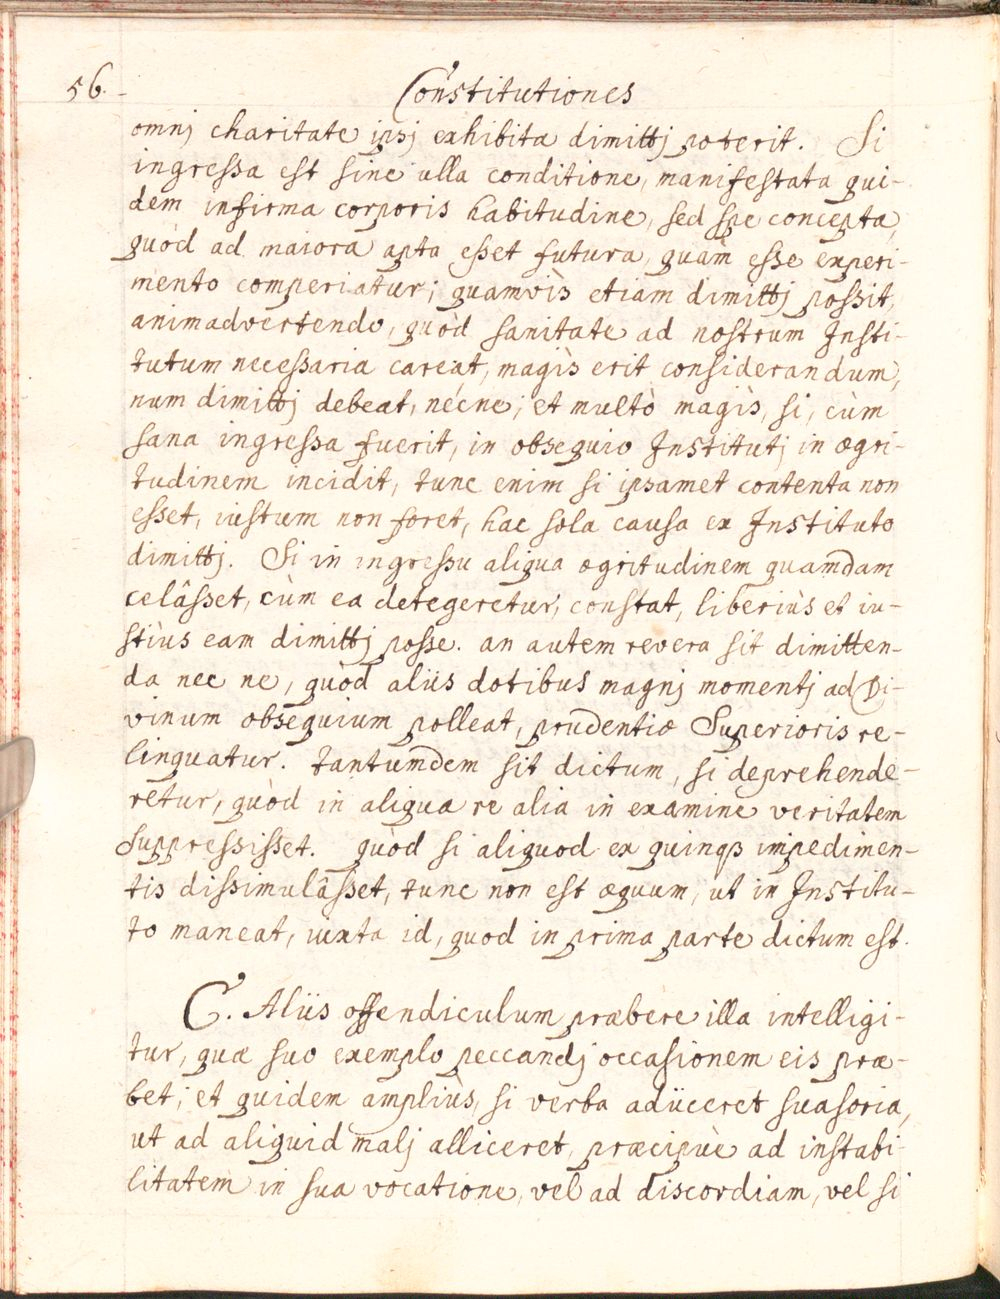 56.
Constitutiones
omnj charitate ipsj exhibita dimittj poterit. Si
ingressa est sine ulla conditione, manifestata qui-
dem infirma corporis habitudine, sed spe concepta,
quòd ad maiora apta esset futura, quàm esse experi-
mento comperiatur; quamvìs etiam dimittj possit,
animadvertendo, quòd sanitate ad nostrum Insti-
tutum necessaria careat, magìs erit considerandum,
num dimittj debeat, nécne; et multò magìs, si, cùm
sana ingressa fuerit, in obsequio Institutj in ægri-
tudinem incidit, tunc enim si ipsamet contenta non
esset, iustum non foret, hac sola causa ex Instituto
dimittj. Si in ingressu aliqua ægritudinem quamdam
celâsset, cùm ea detegeretur, constat, liberiùs et iu-
stiùs eam dimittj posse. an autem revera sit dimitten-
da nec ne, quòd aliis dotibus magnj momentj ad Di-
vinum obsequium polleat, prudentiæ Superioris re-
linquatur. tantumdem sit dictum, si deprehende-
retur, quòd in aliqua re alia in examine veritatem
suppressisset. quòd si aliquod ex quinqз impedimen-
tis dissimulâsset, tunc non est æquum, ut in Institu-
to maneat, iuxta id, quod in prima parte dictum est.
C. Aliis offendiculum præbere illa intelligi-
tur, quæ suo exemplo peccandj occasionem eis præ-
bet; et quidem ampliùs, si verba adiiceret suasoria,
ut ad aliquid malj alliceret, præcipuè ad instabi-
litatem in sua vocatione, vel ad discordiam, vel si